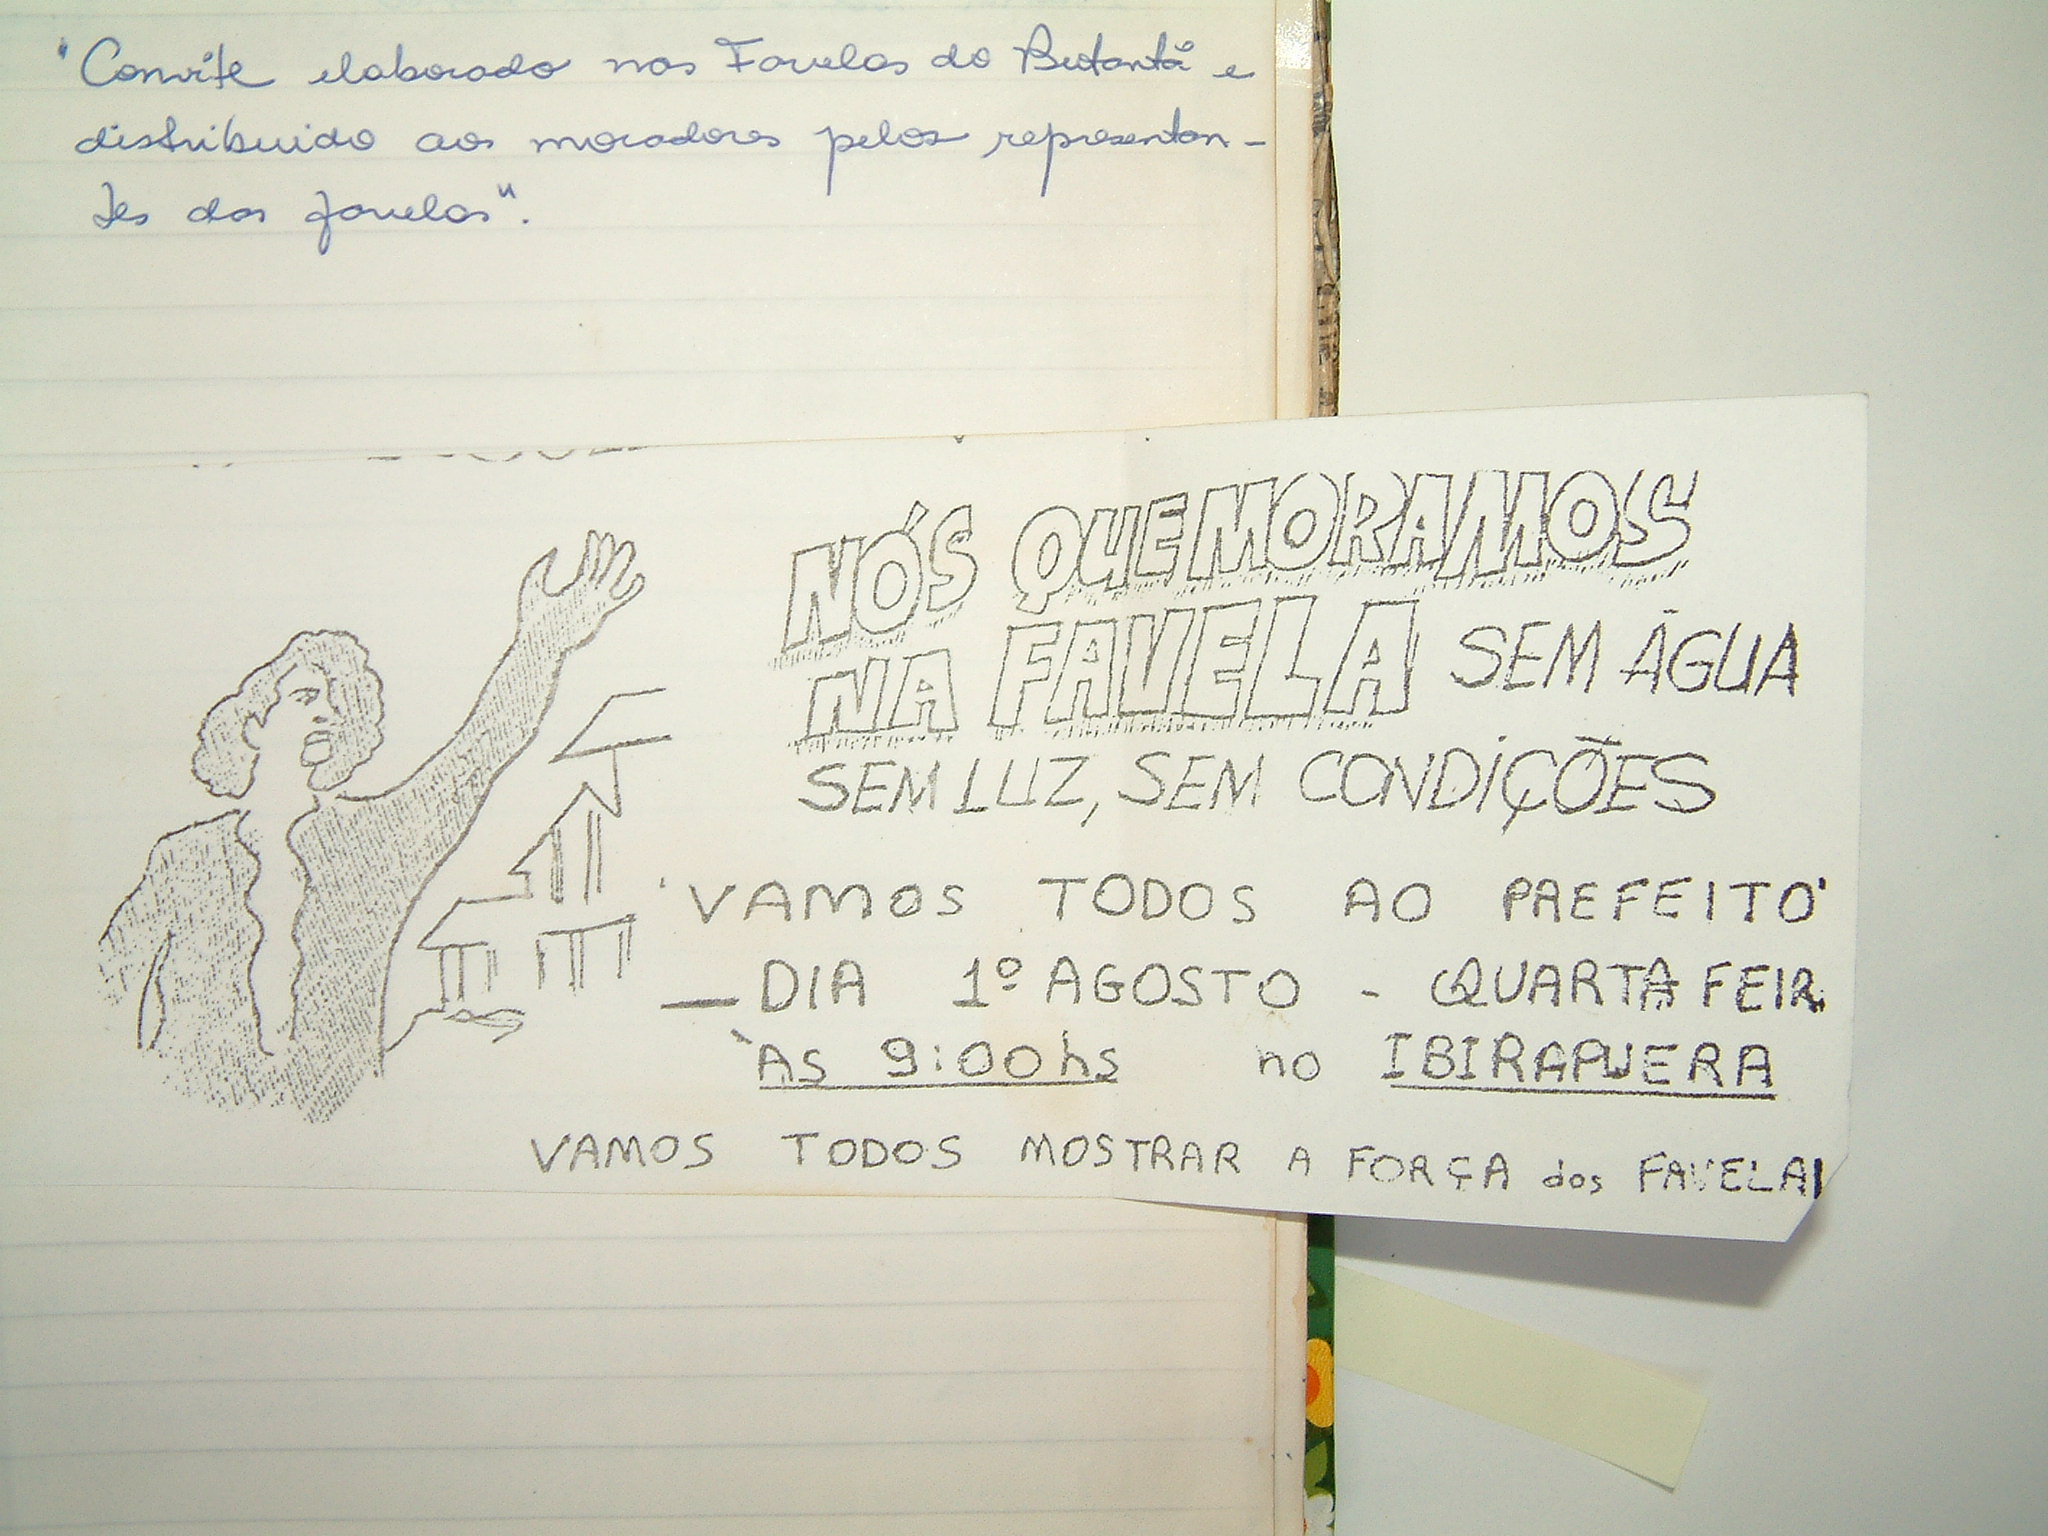 "Convite elaborado nas Favelas do Butantã e
distribuido aos moradores pelos representan-
tes das favelas".
NÓS QUE MORAMOS
NA FAVELA SEM ÁGUA
SEM LUZ, SEM CONDIÇÕES
'VAMOS TODOS AO PREFEITO'
— DIA 1º AGOSTO - QUARTA FEIR
ÀS 9:00 hs no IBIRAPUERA
VAMOS TODOS MOSTRAR A FORÇA dos FAVELA